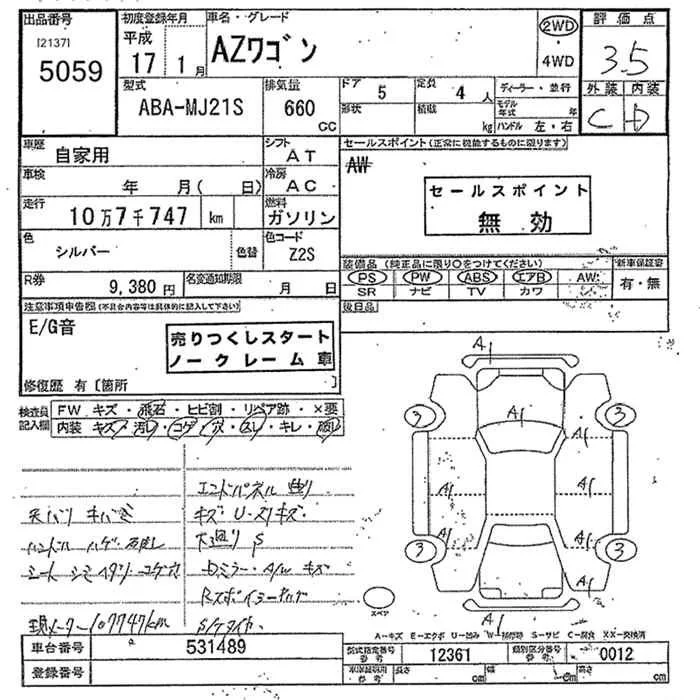 出品番号
[2137]
5059
初度登録年月
平成
17 1月
車名・グレード
AZワゴン
2WD
4WD
評価点
3.5
外装 内装
C D
型式
ABA-MJ21S
排気量
660
CC
ドア
5
形状
定員
4人
積載
kg
ディーラー・並行
モデル年式 年
ハンドル 左・右
車歴
自家用
シフト
AT
車検
年 月( 日)
冷房
AC
走行
10万7千747 km
燃料
ガソリン
色
シルバー
色替
色コード
Z2S
R券
9,380円
名変通知期限
月 日
セールスポイント(正常に機能するものに限ります)
AW
セールスポイント
無効
装備品(純正品に限り○をつけてください)
PS PW ABS エアB AW
SR ナビ TV カワ
新車保証書
有・無
後日品
注意事項申告欄(不具合内容等は具体的に記入して下さい)
E/G音
売りつくしスタート
ノークレーム車
修復歴 有[箇所
検査員記入欄
FW キズ・飛石・ヒビ割・リペア跡・×要
内装 キズ・汚レ・コゲ・穴・スレ・キレ・破レ
エンドパネル 曲り
天バリ キバミ
キズ U・スリキズ
ハンドル ハゲ
大廻り S
シート シミ
ミラー・A/W キズ
現メーター107747km
A1
A1
3
3
A1
A1
A1
A1
A1
A1
3
3
A1
スペア
A−キズ E−エクボ U−凹み W−補修跡 S−サビ C−腐食 XX−交換済
車台番号
531489
型式指定番号
参考
12361
類別区分番号
参考
0012
登録番号
長さ cm
幅 cm
高さ cm